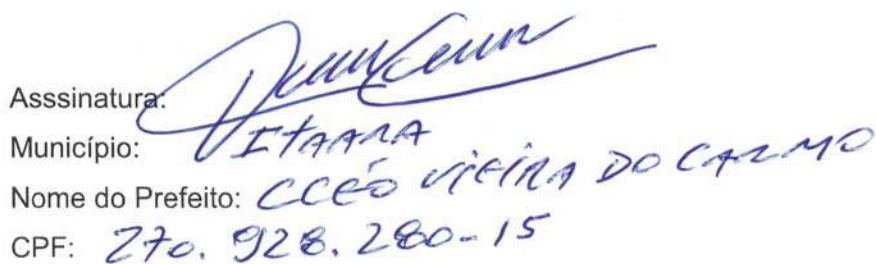 Asssinatura:
Município: Itaara
Nome do Prefeito: CLÉO VIEIRA DO CARMO
CPF: 270.928.280-15